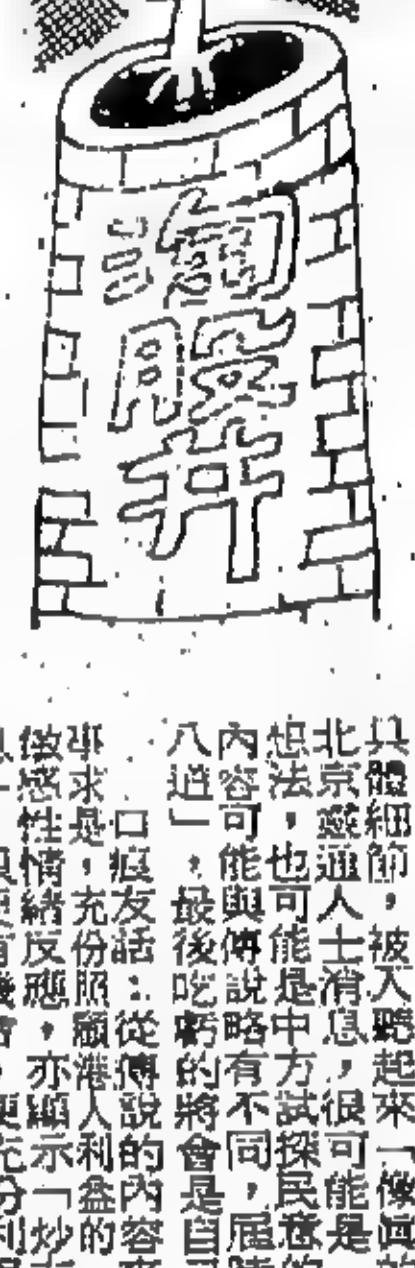 淘膠井
具體細節，被人聽起來「像真的
北京靈通人士消息，很可能是
想法，也可能是中方試探民意的
內容可能與傳說略有不同，屆時
八道」，最後吃虧的將會是自
口痕友話：從傳說的內容
事求是，充份照顧港人利益的
敏感性情緒反應，亦顯示「炒